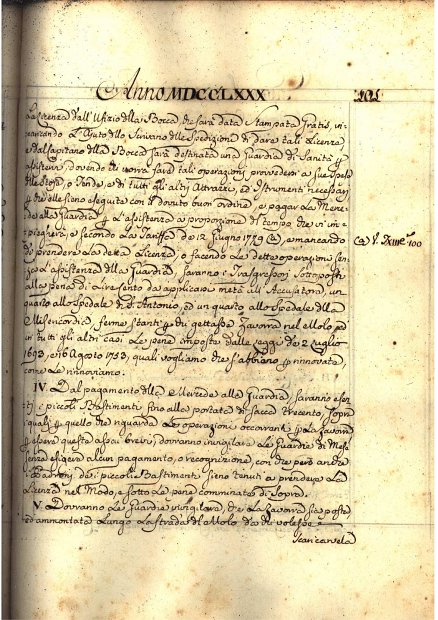 Anno MDCCLXXX 101
La Licenza dall'Ufizio della Bocca che sarà data Stampata Gratis, in
caricando L'Ajuto dello Scrivano delle Spedizioni di dare tali Licenze
e dal Capitano della Bocca sarà destinata una Guardia di Sanità p
assistervi, dovendo chi vorrà fare tali operazioni provvedersi a sue spese
delle Stoje, o Tende, e di tutti gli altri Attrazzi, ed Istrumenti necessarj
p che sieno eseguite con il dovuto buon'ordine, e pagar La Mer=
cede alla Guardia p L'Assistenza a proporzione di tempo che vi im=
piegherà, e secondo La Tariffa de 12 Giugno 1779 (a), e mancando
(a) V. F. XIII c. 100
di prendere La detta Licenza, o facendo Le dette operazioni sen
za L'assistenza della Guardia, saranno i Trasgressori Sottoposti
alla pena di Lire Cento da applicarsi metà all'Accusatore, un
quarto allo Spedale di S. Antonio, ed un quarto allo Spedale della
Misericordia, ferme stanti p chi gettasse Zavorra nel Molo, ed
in tutti gli altri casi Le pene imposte dalle Leggi de 2 Luglio
1693, e 16 Agosto 1753, quali vogliamo che s'abbiano p rinnovate,
come Le rinnoviamo.
IV. Dal pagamento della Mercede alla Guardia, saranno esen
ti i piccoli Bastimenti fino alla portata di Sacca Trecento, Sopra
i quali p quello che riguarda Le operazioni occorrenti p La Zavorra
p essere queste assai brevi, dovranno invigilare Le Guardie di Mos
senza esigere alcun pagamento, o recognizione, con che però anche
i Padroni de i piccoli Bastimenti sieno tenuti a prendere La
Licenza nel Modo, e sotto Le pene comminate di Sopra.
V. Dovranno Le Guardie invigilare, che La Zavorra sia posta
ed ammontata Lungo La Strada del Molo da chi volesse
Scaricarvela